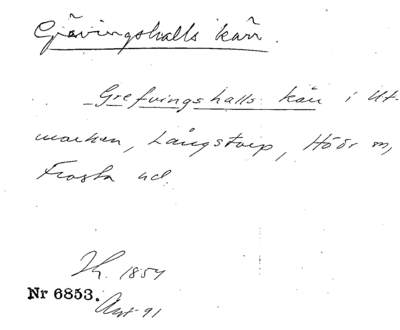 Grävingshalls kärr.
Grefvingshalls kärr i Ut-
marken, Långstorp, Höör sn,
Frosta hd.
1854
Nr 6853.
Avst. 91